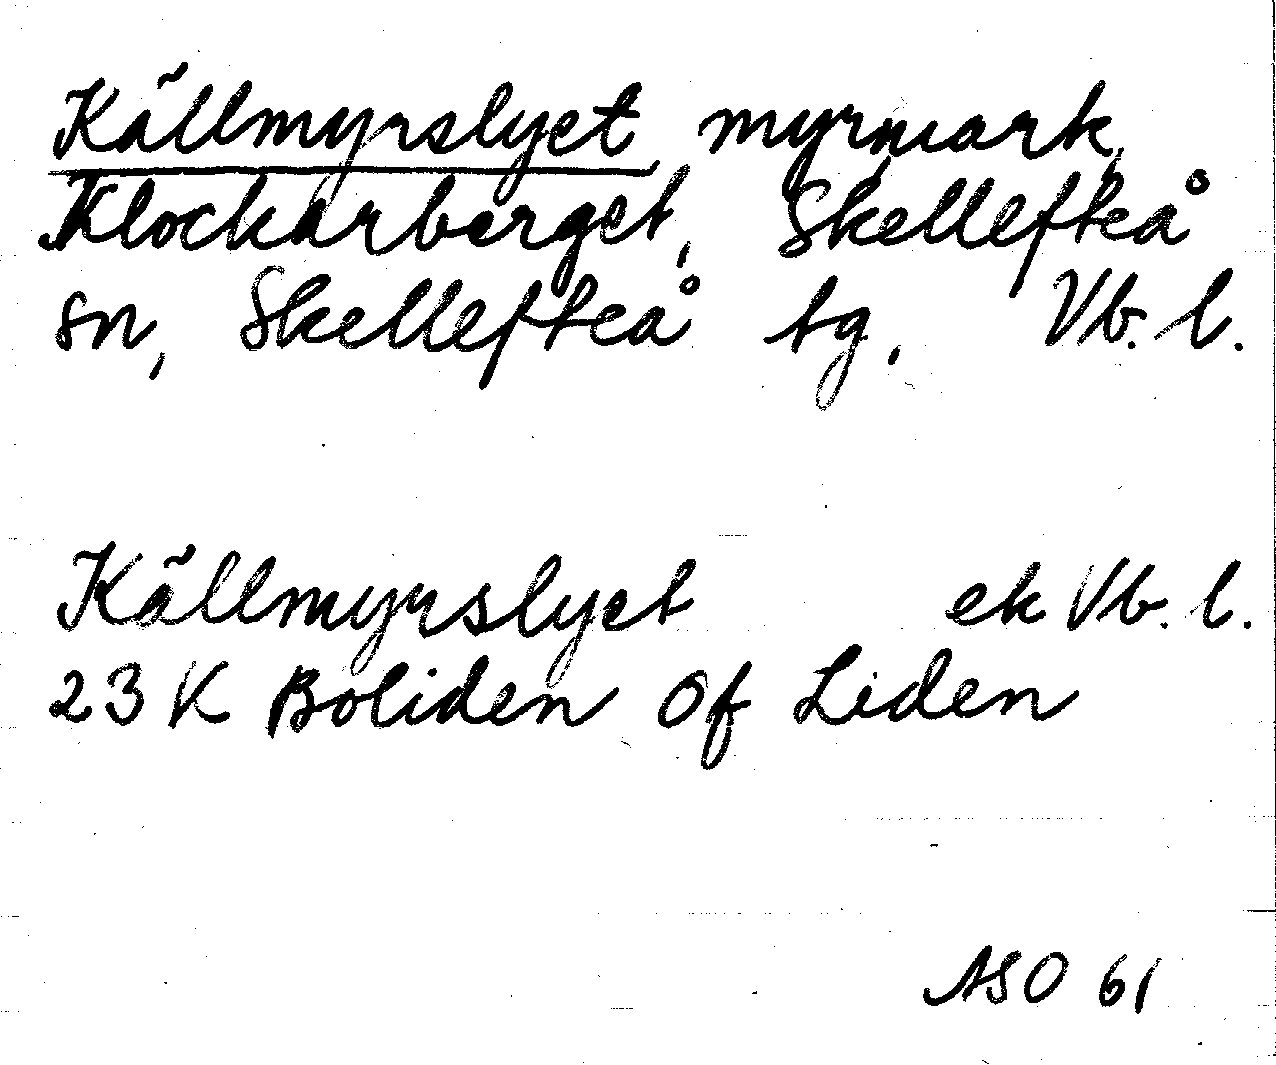 Källmyrslyet, myrmark,
Klockarberget, Skellefteå
sn, Skellefteå tg. Vb. l.
Källmyrslyet ek Vb. l.
23 K Boliden Of Liden
ASO 61